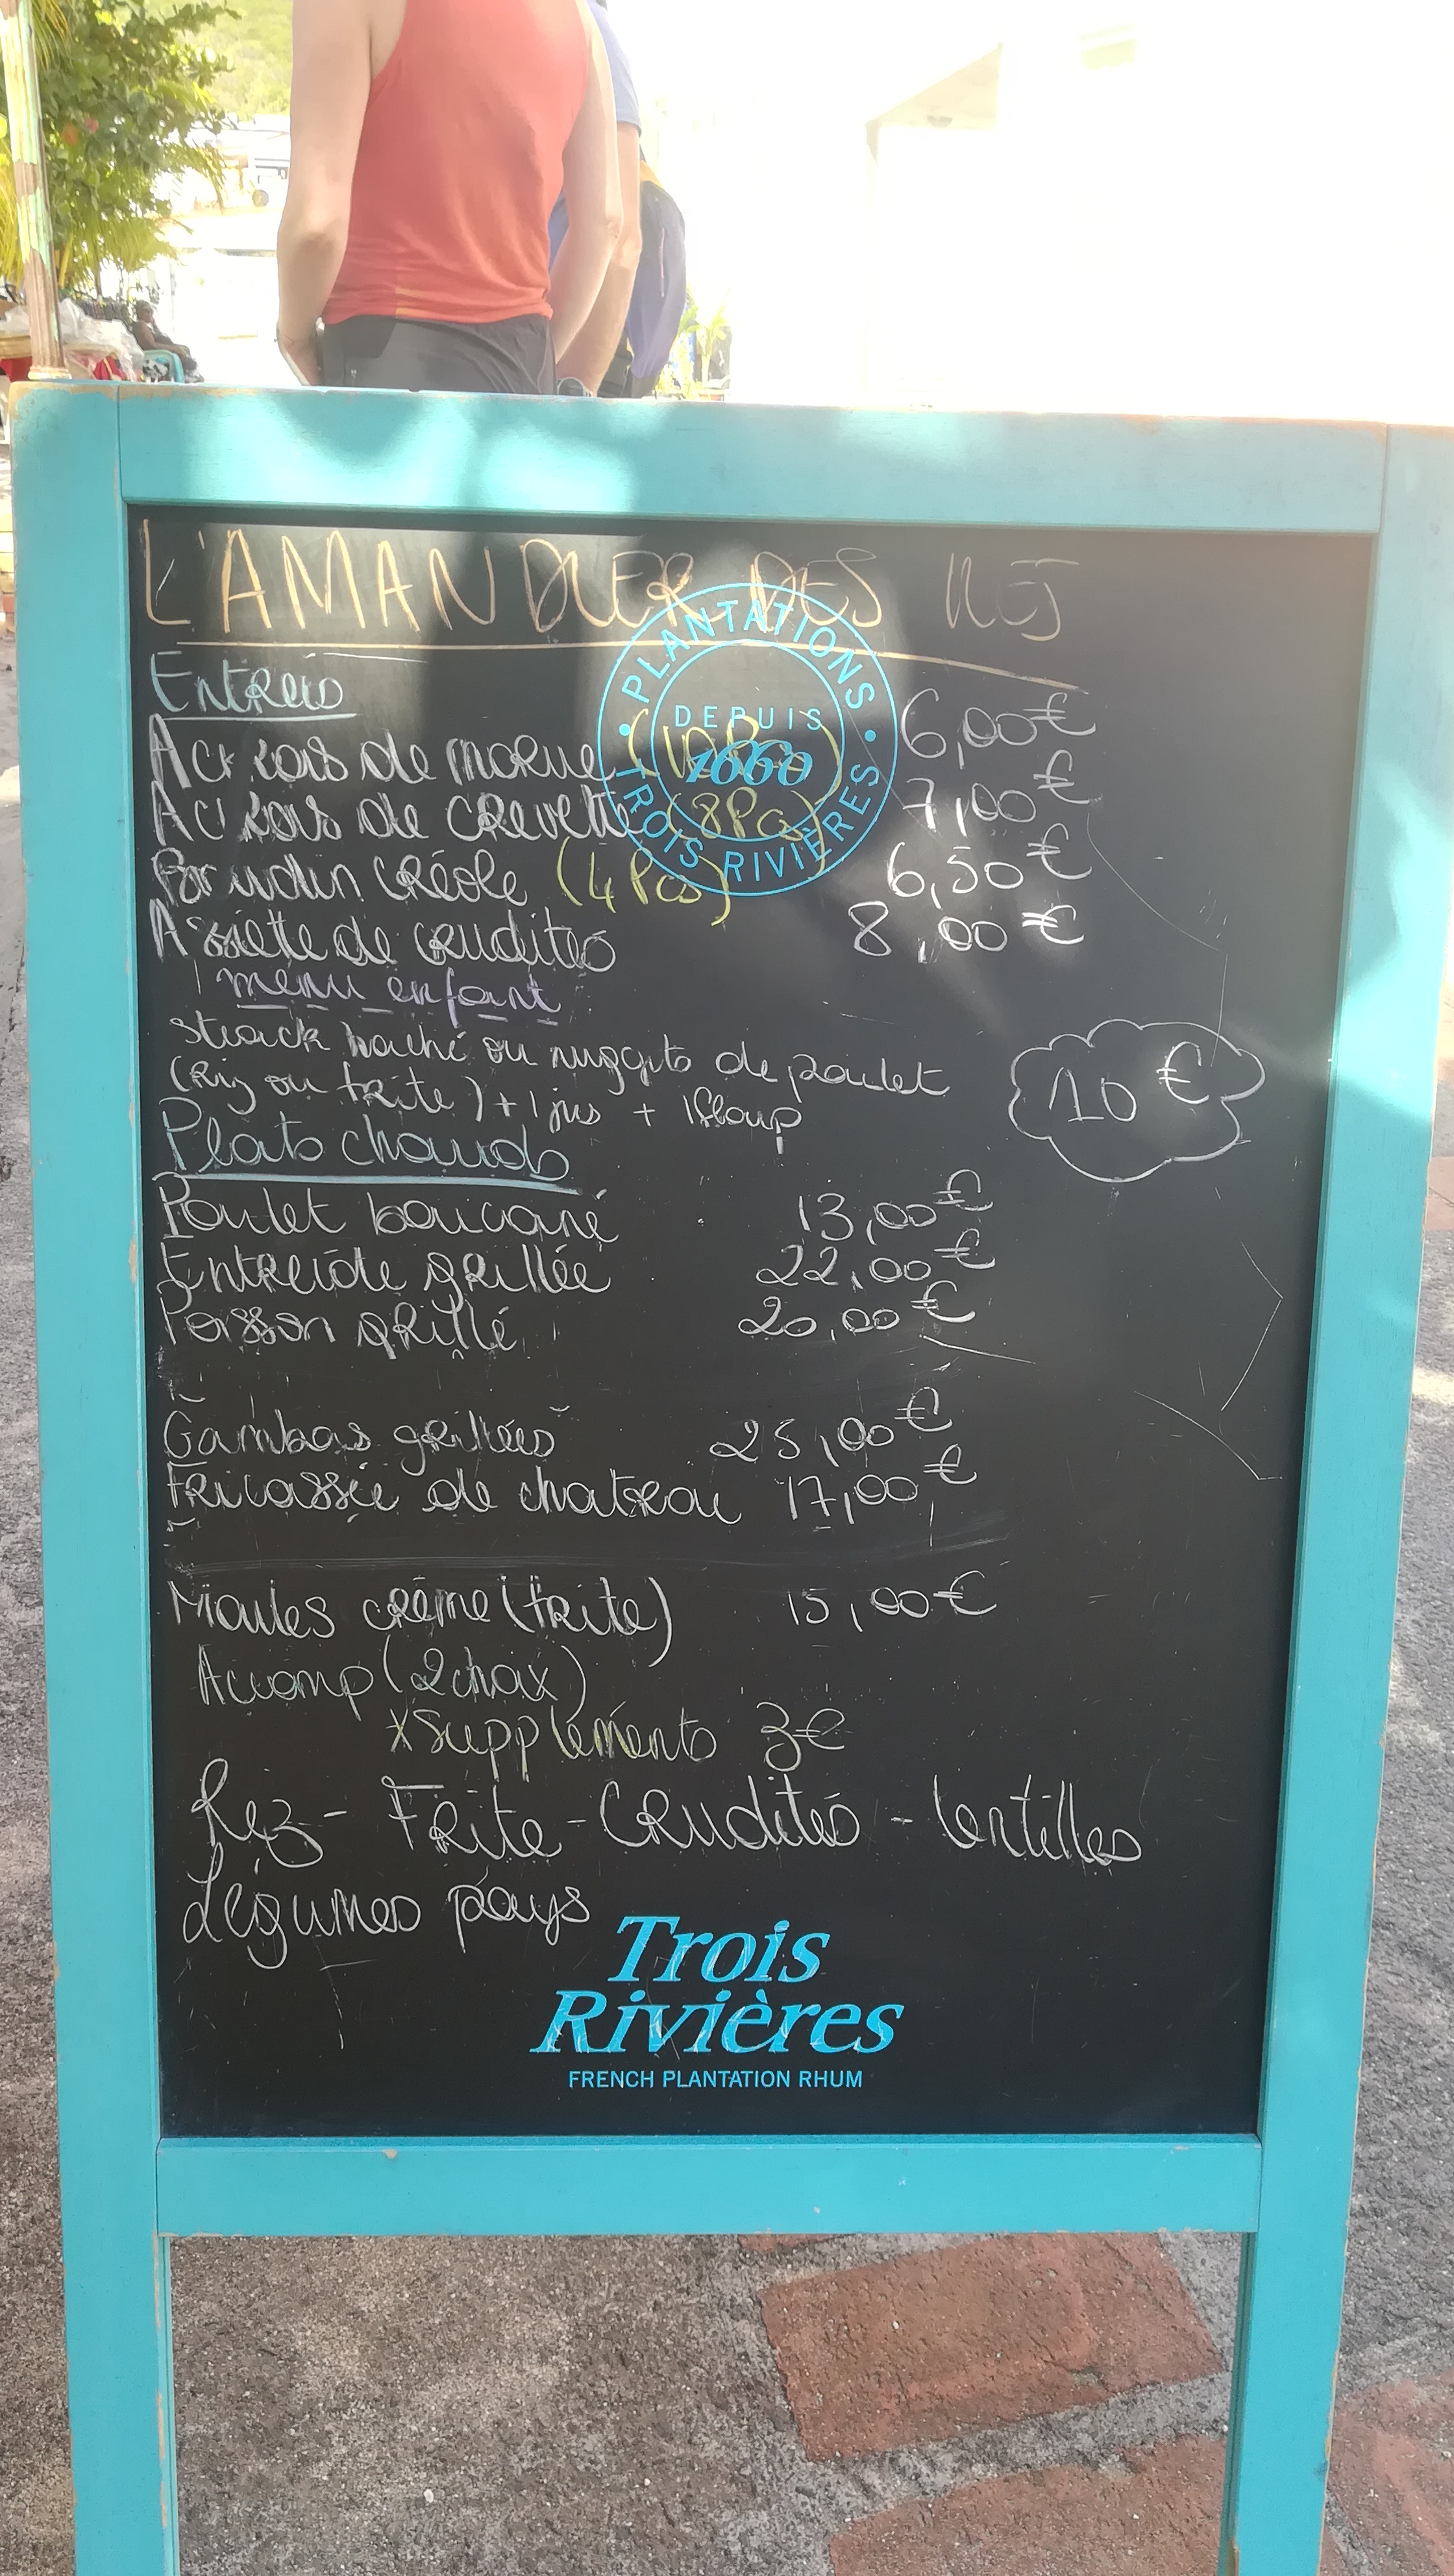 L'AMANDIER DES ILES
PLANTATIONS
DEPUIS
1660
TROIS RIVIÈRES
Entrées
Accras de morue (10Pcs) 6,00€
Accras de crevette (8Pcs) 7,00€
Boudin créole (4 Pcs) 6,50€
Assiette de crudités 8,00€
menu enfant
steack haché ou nuggets de poulet
(Riz ou frite) + 1 jus + 1 floup
10 €
Plats chauds
Poulet boucané 13,00€
Entrecôte grillée 22,00€
Poisson grillé 20,00€
Gambas grillées 25,00€
Fricassée de chatrou 17,00€
Moules crème (frite) 15,00€
Accomp (2 choix)
x supplements 3€
Riz - Frite - Crudités - lentilles
Légumes pays
Trois
Rivières
FRENCH PLANTATION RHUM